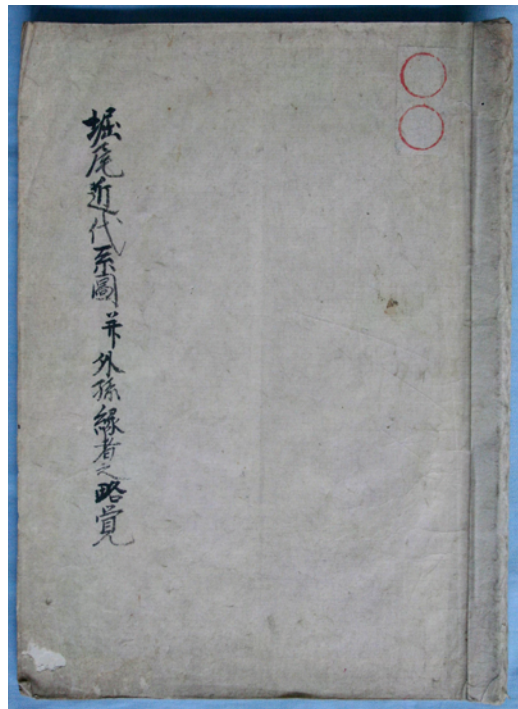 堀尾近代系圖并外孫縁者之略覚